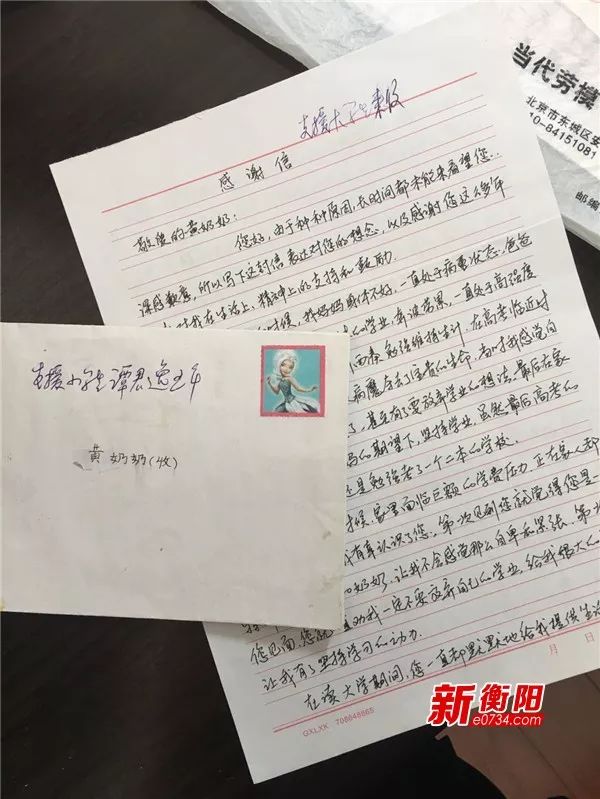 当代劳模
北京市东城区安
10-84151081
邮编
支援大学生来信
感谢信
敬爱的黄奶奶:
您好,由于种种原因,长时间都未能来看望您..
深感歉意,所以写下这封信表达对您的想念,以及感谢您这么多年
对我在生活上、精神上的支持和鼓励.
时候,我妈妈身体不好,一直处于病重状态,爸爸
心学业,奔波劳累,一直处于高强度
西奔勉强维持生计.在高考临近时
病魔夺去了
了,甚至有了要放弃学业的想法.最后在家
妈的期望下,坚持学业,虽然最后高考的
还是勉强考了一个二本的学校.
时候,家里面临巨额的学费压力,正在家人都
我有幸认识了您.第一次见到您就觉得您是一
奶奶,让我不会感觉那么自卑和紧张.第二
您见面,您
我一定不要放弃自己的学业,给我很大的
让我有了坚持学习的动力.
在读大学期间,您一直都默默地给我提供生活
月 日
GXLXK 706646665
支援小学生谭君逸五年
黄奶奶(收)
新衡阳
e0734.com